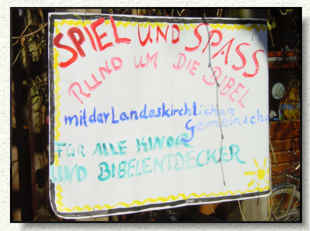 SPIEL UND SPASS
RUND UM DIE BIBEL
mit der Landeskirchlichen
Gemeinschaft
FÜR ALLE KINDER
UND BIBELENTDECKER